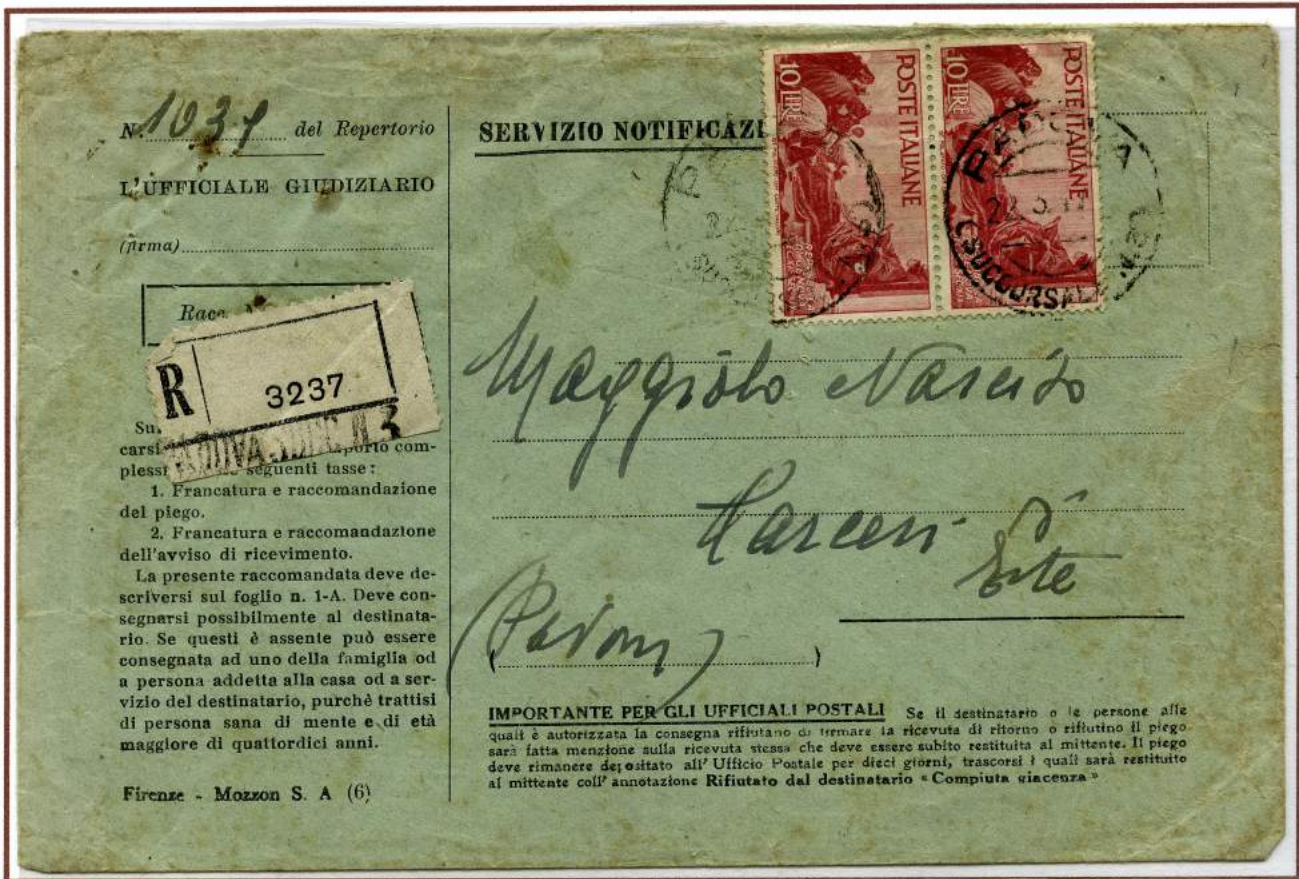 N. 1037 del Repertorio
L'UFFICIALE GIUDIZIARIO
(firma)
R
3237
PADOVA SUCC. N 3
carsi
porto com-
seguenti tasse:
1. Francatura e raccomandazione
del piego.
2. Francatura e raccomandazione
dell'avviso di ricevimento.
La presente raccomandata deve de-
scriversi sul foglio n. 1-A. Deve con-
segnarsi possibilmente al destinata-
rio. Se questi è assente può essere
consegnata ad uno della famiglia od
a persona addetta alla casa od a ser-
vizio del destinatario, purchè trattisi
di persona sana di mente e di età
maggiore di quattordici anni.
Firenze - Mozzon S. A (6)
SERVIZIO NOTIFICAZI
10 LIRE
POSTE ITALIANE
10 LIRE
POSTE ITALIANE
PADOVA
SUCCURSALE N. 3
Maggiolo Narciso
Carceri
Este
(Padova)
IMPORTANTE PER GLI UFFICIALI POSTALI Se il destinatario o le persone alle
quali è autorizzata la consegna rifiutano di firmare la ricevuta di ritorno o rifiutino il piego
sarà fatta menzione sulla ricevuta stessa che deve essere subito restituita al mittente. Il piego
deve rimanere depositato all'Ufficio Postale per dieci giorni, trascorsi i quali sarà restituito
al mittente coll'annotazione Rifiutato dal destinatario «Compiuta giacenza»